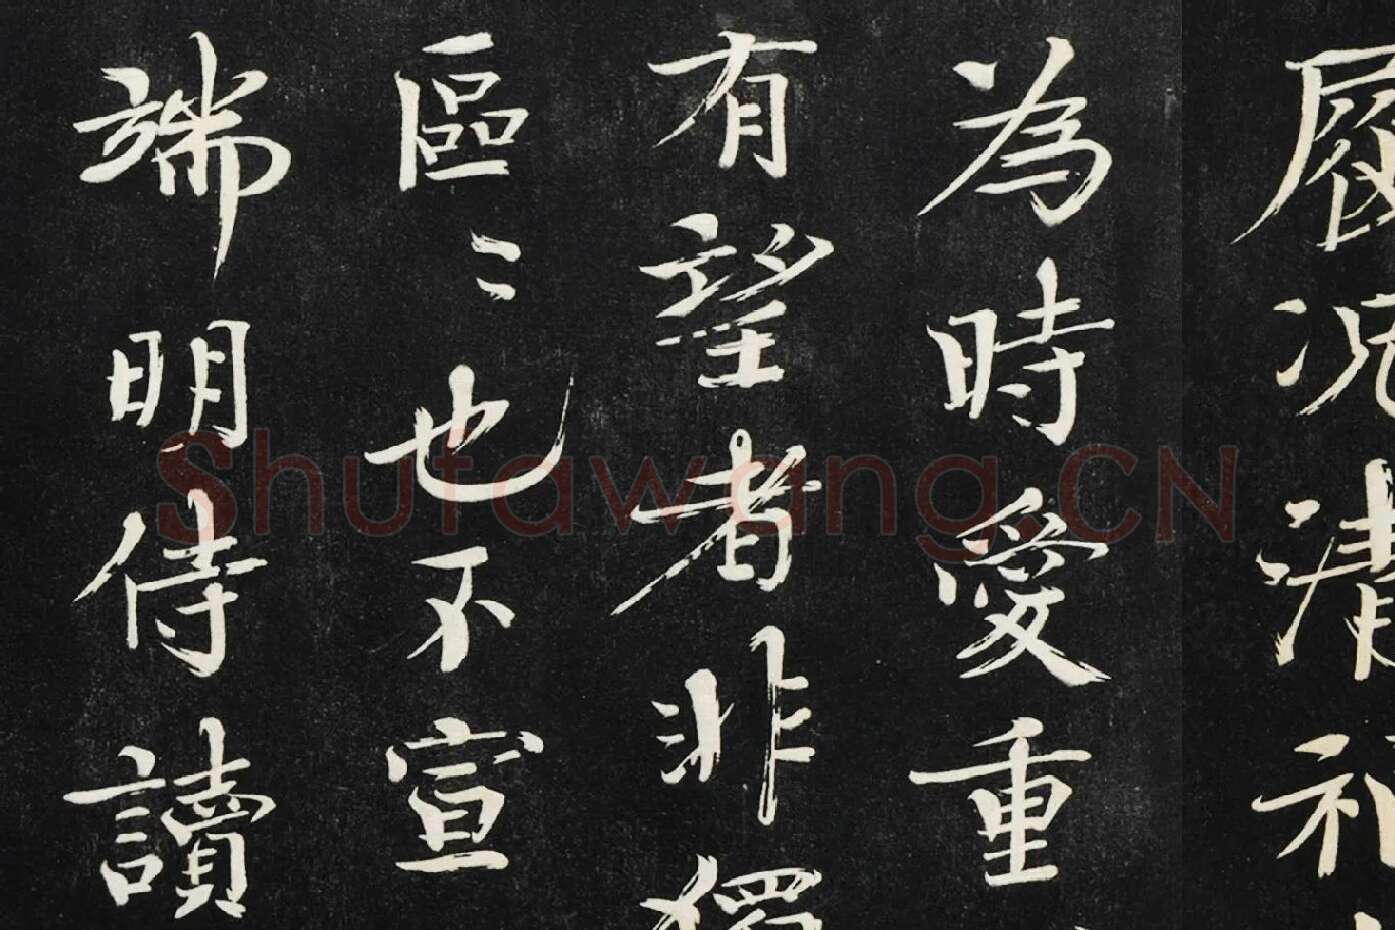 履況清
為時愛重
有望者非獨
區〻也不宣
端明侍讀
Shufawang.CN